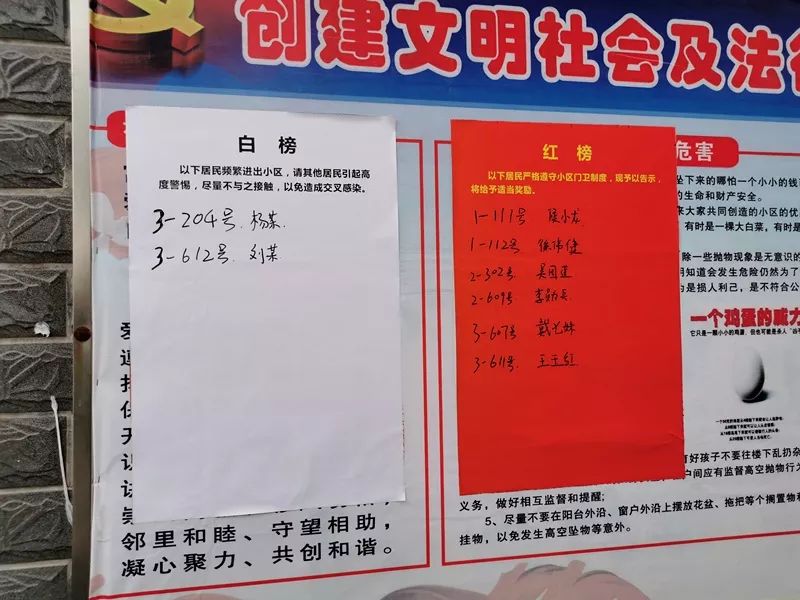 创建文明社会及法
白榜
以下居民频繁进出小区，请其他居民引起高
度警惕，尽量不与之接触，以免造成交叉感染。
3-204号 杨某
3-612号 刘某
邻里和睦、守望相助，
凝心聚力、共创和谐。
红榜
以下居民严格遵守小区门卫制度，现予以告示，
将给予适当奖励。
1-111号 侯小龙
1-112号 徐伟健
2-302号
2-609号
3-607号
3-611号 王玉红
危害
坠下来的哪怕一个小小的钱
的生命和财产安全。
来大家共同创造的小区的优
有时是一棵大白菜，有时是
除一些抛物现象是无意识的
明知道会发生危险仍然为了
为是损人利己，是不符合公
一个鸡蛋的威力
它只是一颗小小的鸡蛋，但也可能是杀人
有好孩子不要往楼下乱扔杂
户间应有监督高空抛物行为
义务，做好相互监督和提醒；
5、尽量不要在阳台外沿、窗户外沿上摆放花盆、拖把等个搁置物和
挂物，以免发生高空坠物等意外。